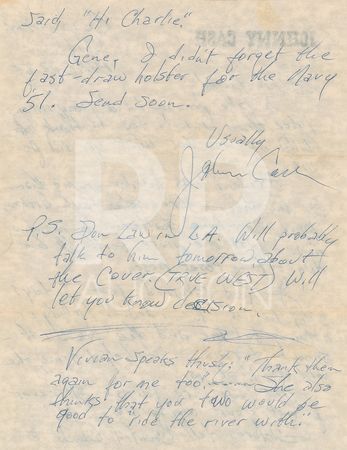 Said, "Hi Charlie."
Gene, I didn't forget the
fast-draw holster for the Navy
'51. Send soon.
Usually
Johnny Cash
P.S. Don Law in L.A. Will probably
talk to him tomorrow about
the Cover. (TRUE WEST) Will
let you know decision.
Vivian speaks thusly: "Thank them
again for me too." She also
thinks that you two would be
good to "ride the river with."
JOHNNY CASH
RR
AUCTION